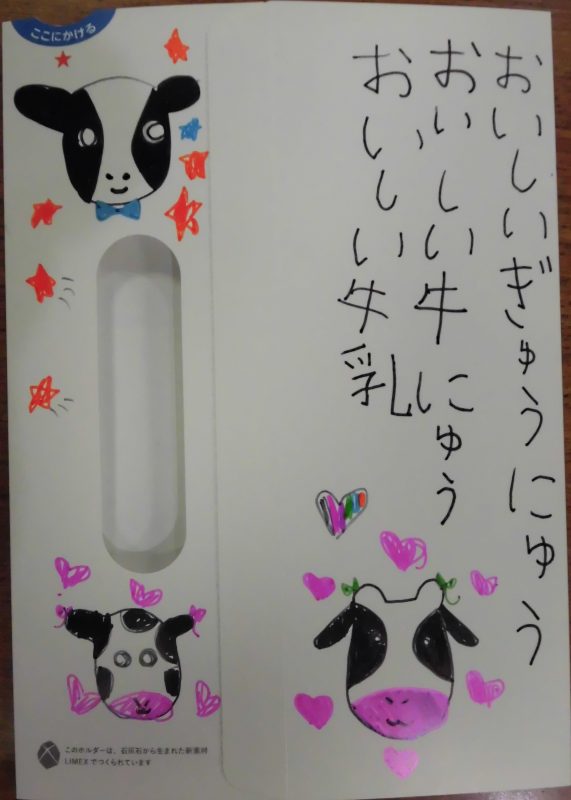 ここにかける
おいしいぎゅうにゅう
おいしい牛にゅう
おいしい牛乳
このホルダーは、石灰石から生まれた新素材
LIMEXでつくられています